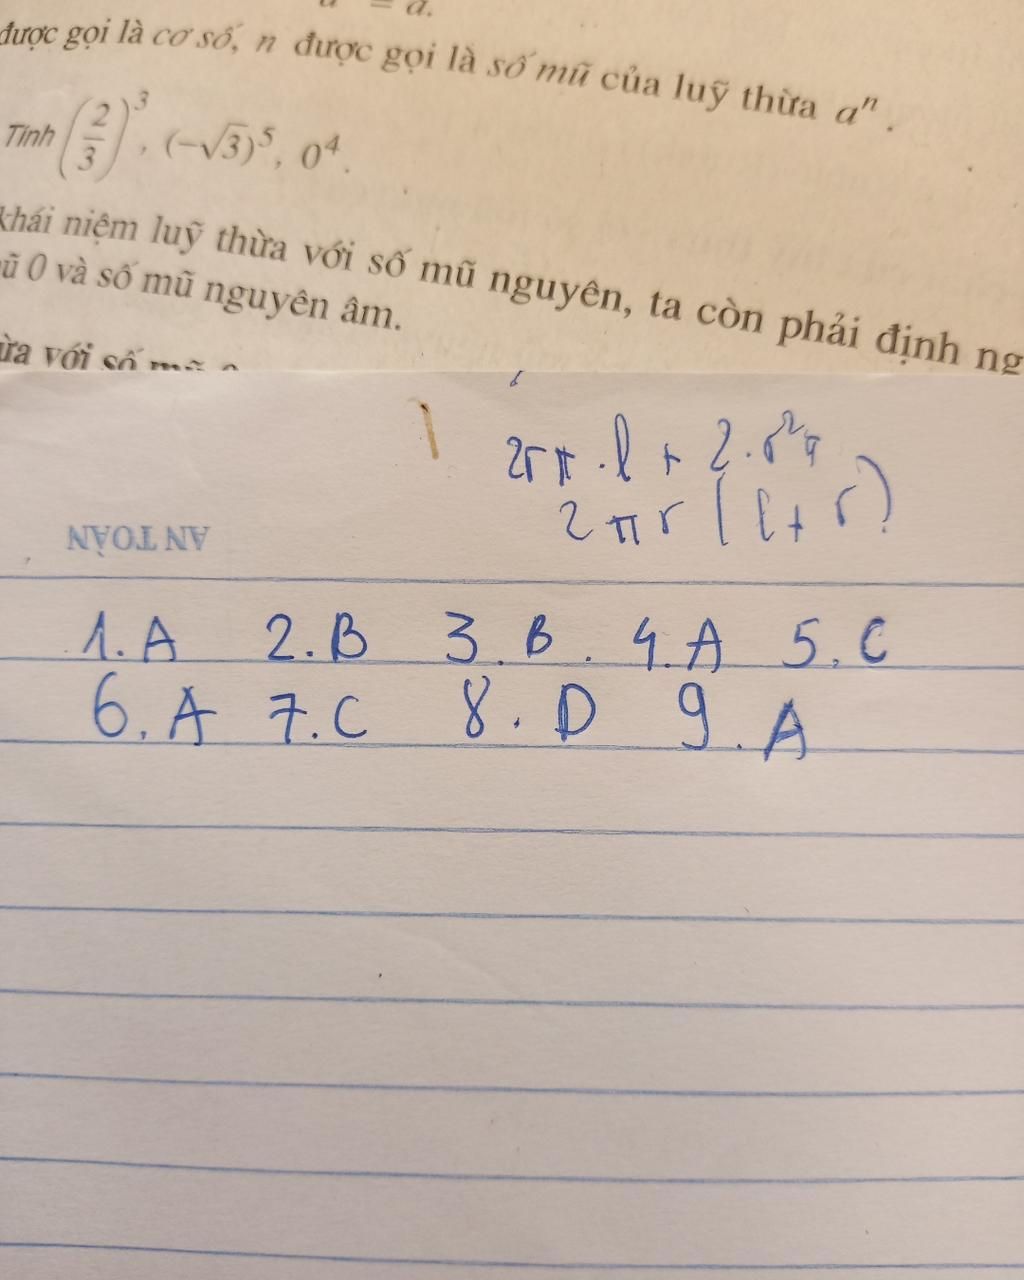 = a.
được gọi là cơ số, n được gọi là số mũ của luỹ thừa aⁿ.
Tính (2/3)³, (−√3)⁵, 0⁴.
khái niệm luỹ thừa với số mũ nguyên, ta còn phải định ng
ũ 0 và số mũ nguyên âm.
ừa với số mũ
2rπ.l + 2.r²π
2πr(l+r)
AN TOÀN
1.A 2.B 3.B. 4.A 5.C
6.A 7.C 8.D 9.A